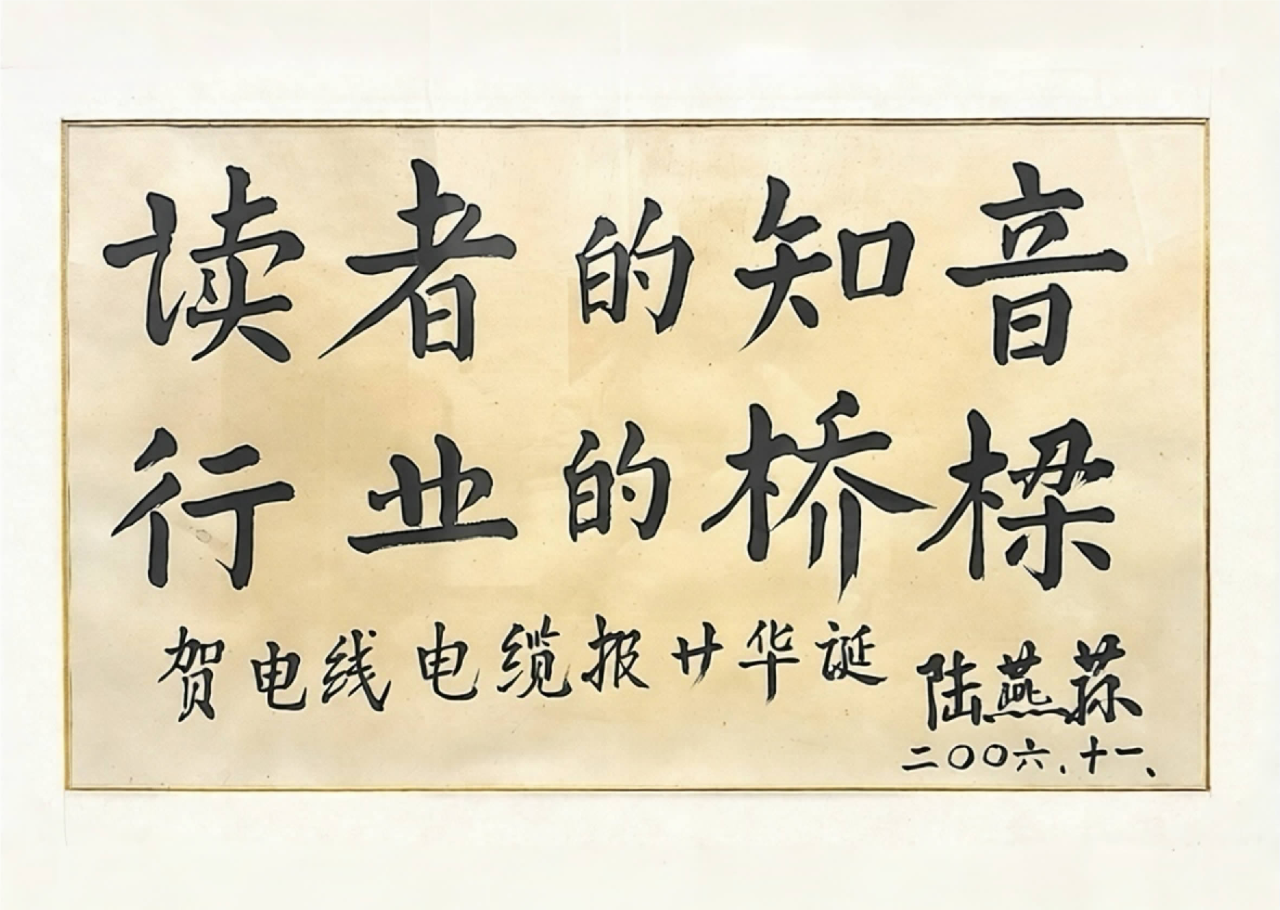 读者的知音
行业的桥梁
贺电线电缆报廿华诞
陆燕荪
二〇〇六.十一、